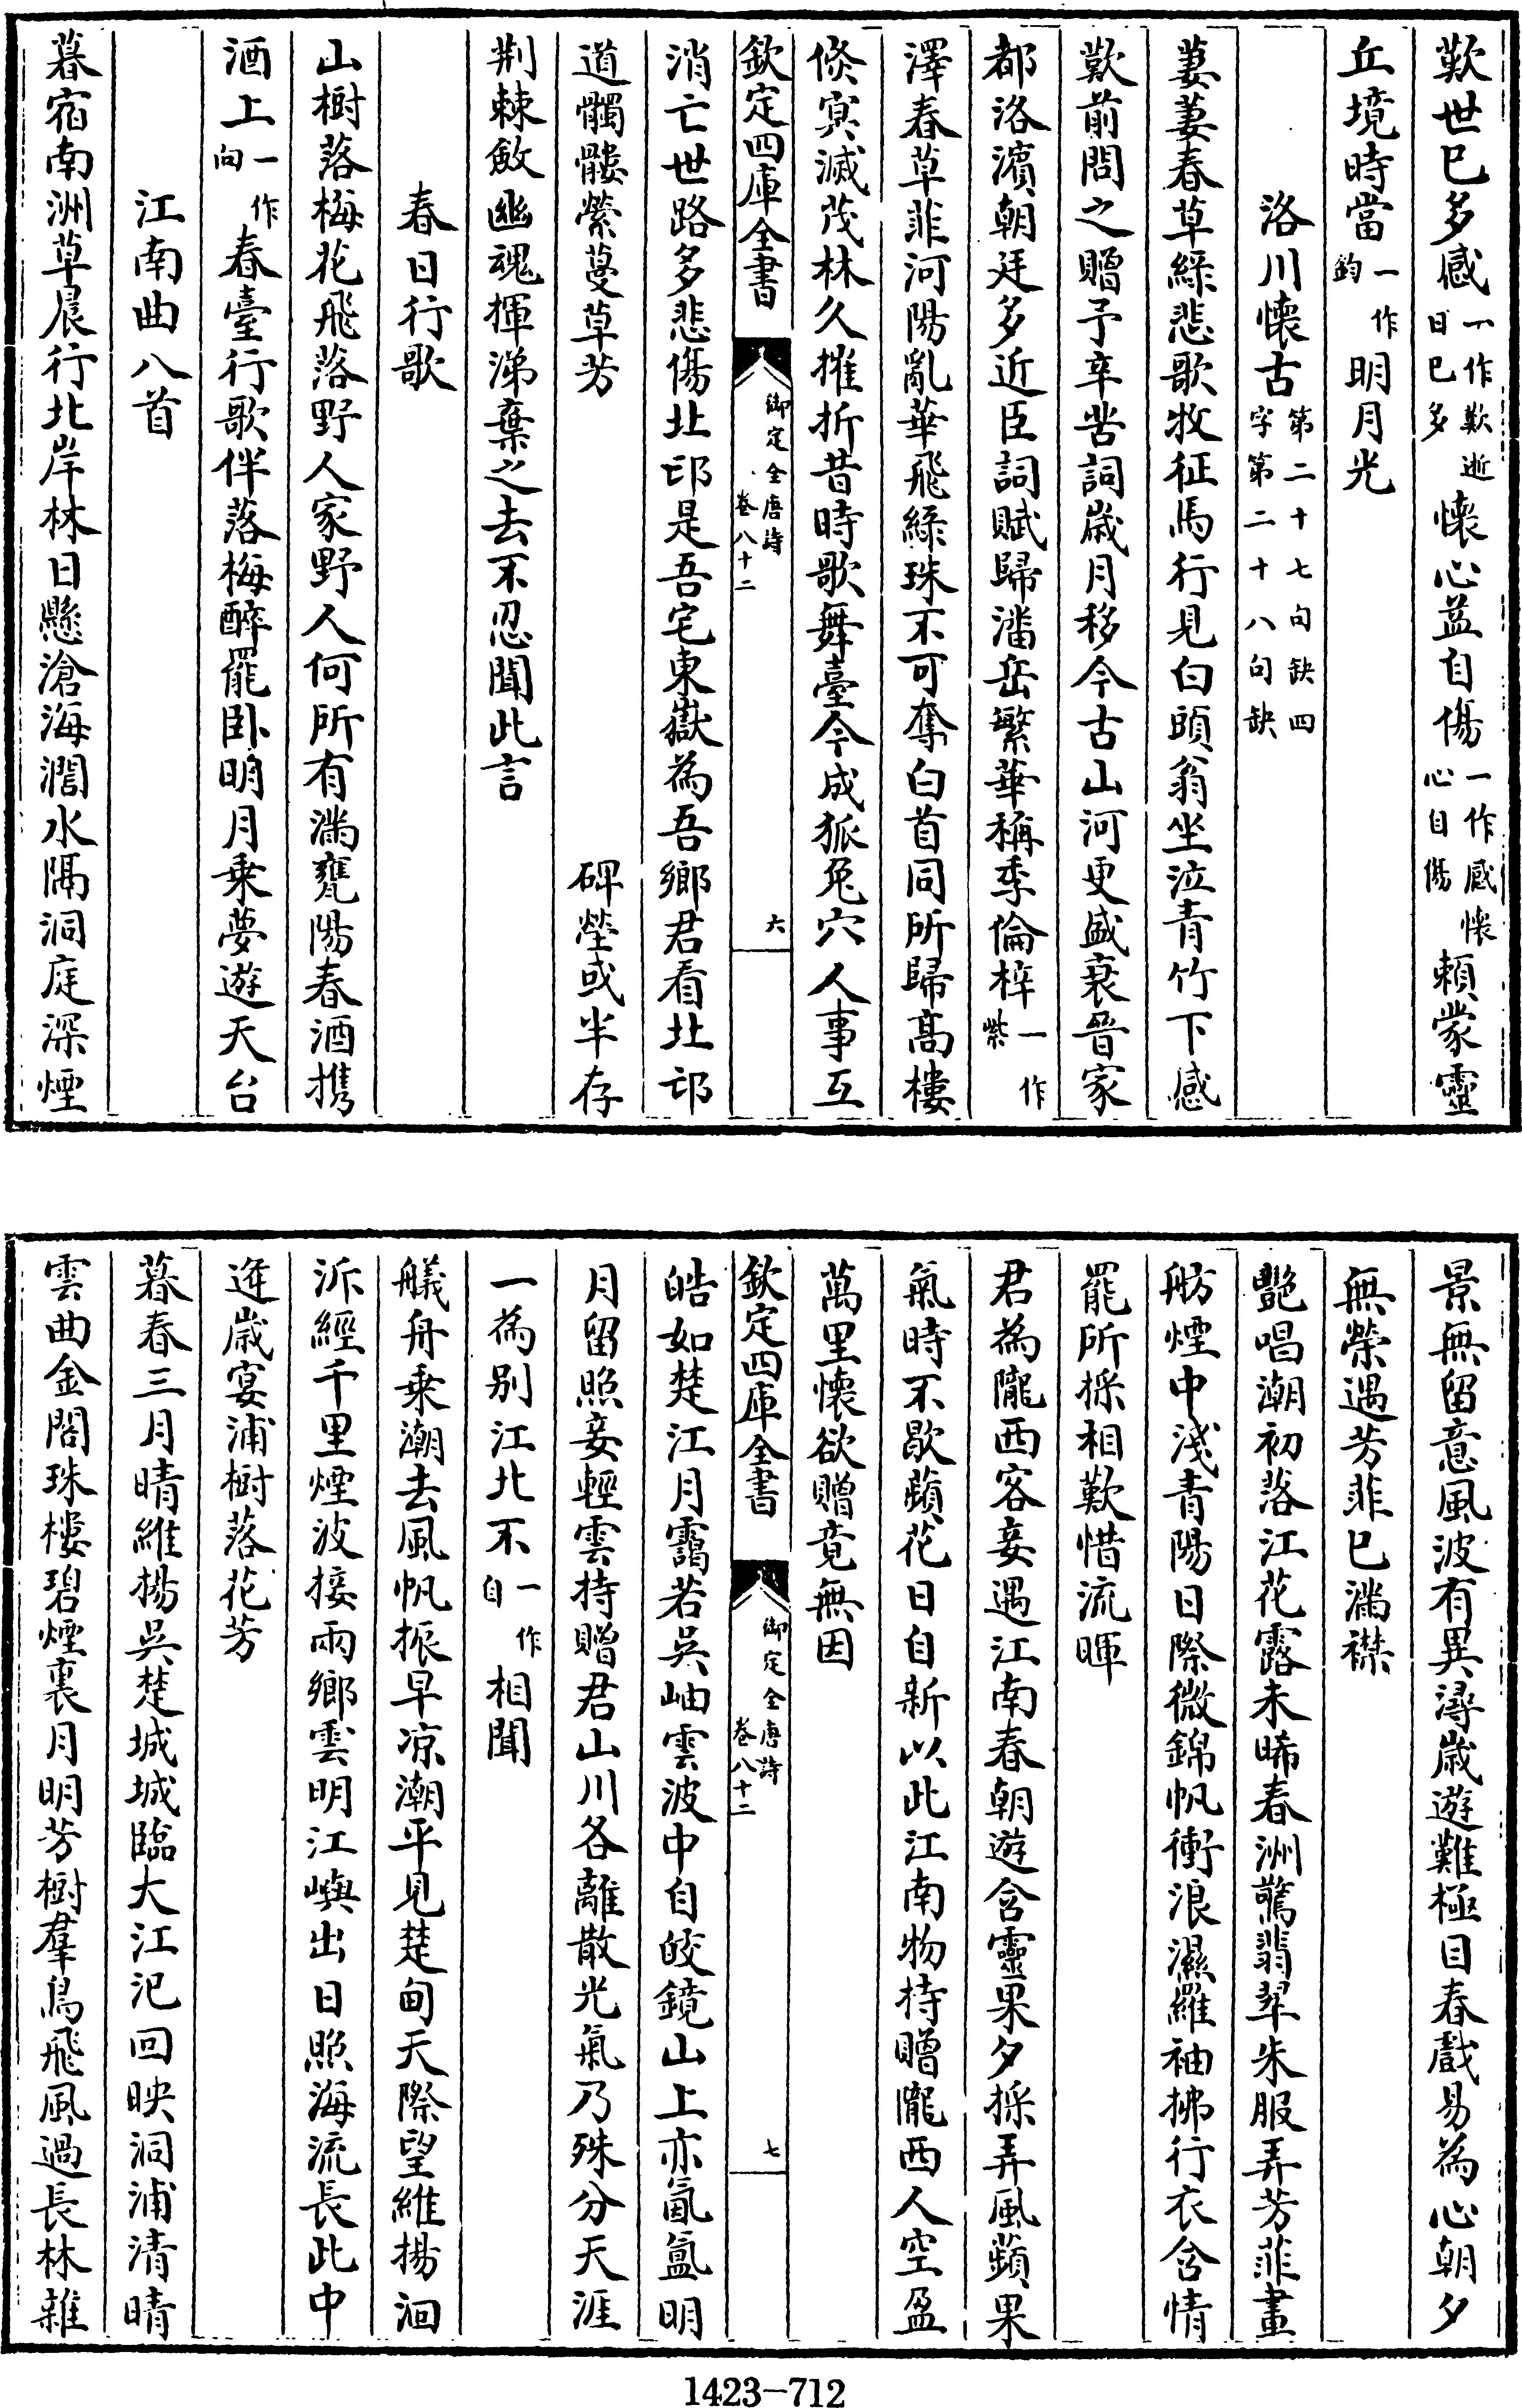 歎世已多感一作歎逝日已多懷心益自傷一作感懷心自傷賴蒙靈
丘境時當一作鈞明月光
洛川懷古第二十七句缺四字第二十八句缺
萋萋春草綠悲歌牧征馬行見白頭翁坐泣青竹下感
歎前問之贈予辛苦詞歲月移今古山河更盛衰晉家
都洛濱朝廷多近臣詞賦歸潘岳繁華稱季倫梓一作紫
澤春草菲河陽亂華飛綠珠不可奪白首同所歸高樓
倏冥滅茂林久摧折昔時歌舞臺今成狐兔穴人事互
欽定四庫全書 御定全唐詩卷八十二 六
消亡世路多悲傷北邙是吾宅東嶽為吾鄉君看北邙
道髑髏縈蔓草芳 碑塋或半存
荆棘斂幽魂揮涕棄之去不忍聞此言
春日行歌
山樹落梅花飛落野人家野人何所有滿甕陽春酒攜
酒上一作向春臺行歌伴落梅醉罷卧明月乗夢遊天台
江南曲八首
暮宿南洲草晨行北岸林日懸滄海濶水隔洞庭深煙
景無留意風波有異潯歲遊難極目春戲易為心朝夕
無榮遇芳菲已滿襟
艷唱潮初落江花露未晞春洲驚翡翠朱服弄芳菲畫
舫煙中淺青陽日際微錦帆衝浪濕羅袖拂行衣含情
罷所採相歎惜流暉
君為隴西客妾遇江南春朝遊含靈果夕採弄風蘋果
氣時不歇蘋花日自新以此江南物持贈隴西人空盈
萬里懷欲贈竟無因
欽定四庫全書 御定全唐詩卷八十二 七
皓如楚江月靄若吳岫雲波中自皎鏡山上亦氤氳明
月留照妾輕雲持贈君山川各離散光氣乃殊分天涯
一為别江北不一作自相聞
艤舟乗潮去風帆振早凉潮平見楚甸天際望維揚洄
泝經千里煙波接兩鄉雲明江嶼出日照海流長此中
逢歲宴浦樹落花芳
暮春三月晴維揚吳楚城城臨大江汜回映洞浦清晴
雲曲金閣珠樓碧煙裏月明芳樹羣鳥飛風過長林雜
1423-712